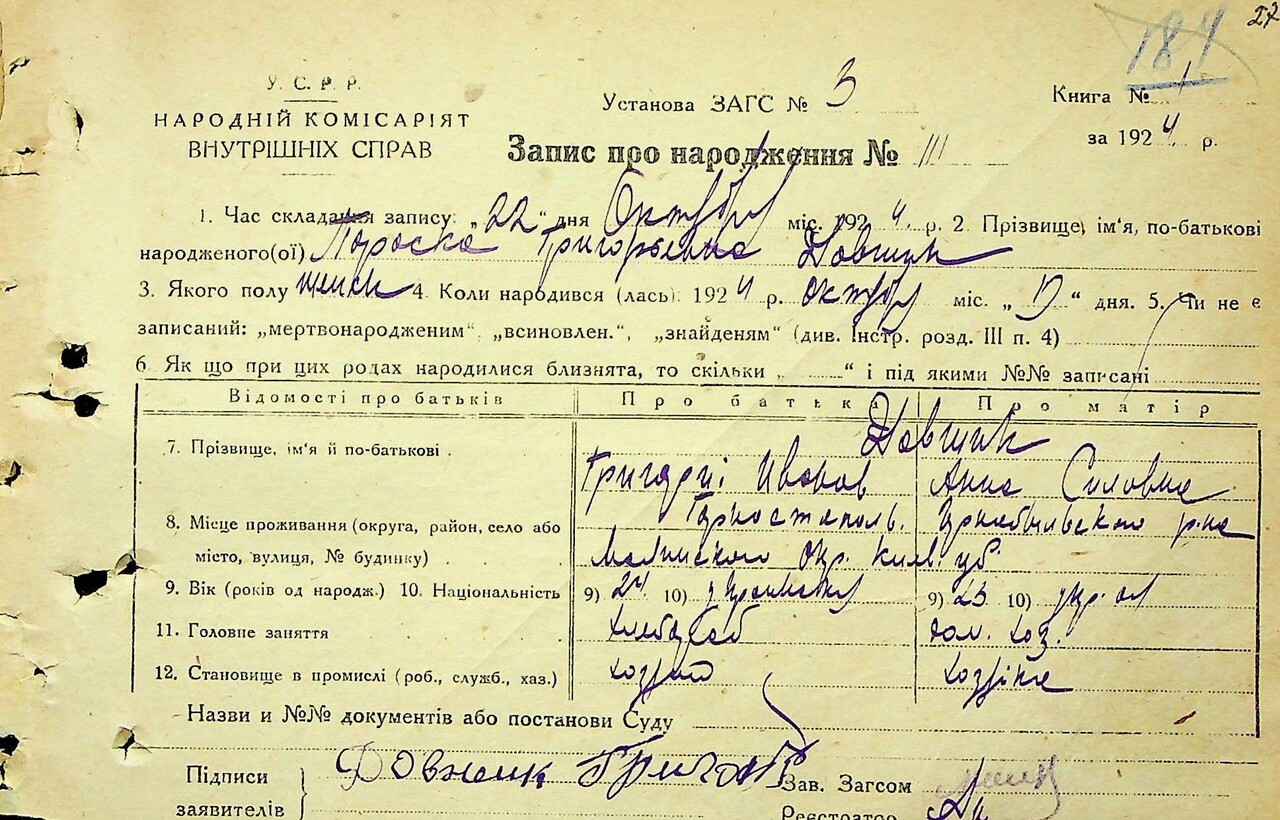 27
184
У. С. Р. Р.
НАРОДНІЙ КОМІСАРІЯТ
ВНУТРІШНІХ СПРАВ
Установа ЗАГС № 3
Книга № 1
за 1924 р.
Запис про народження № 111
1. Час складання запису: „22“ дня Октября міс. 1924 р. 2. Прізвище, ім'я, по-батькові
народженого(ої) Параска Григорьевна Довжик
3. Якого полу женск 4. Коли народився (лась): 1924 р. октября міс. „ “ дня. 5. Чи не є
записаний: „мертвонародженим“, „всиновлен.“, „знайденям“ (див. Інстр. розд. III п. 4)
6. Як що при цих родах народилися близнята, то скільки „ “ і під якими №№ записані
Відомості про батьків Про батька Про матір
7. Прізвище, ім'я й по-батькові Довжик
Григорій Иванов Анна Силовна
8. Місце проживання (округа, район, село або Горностаполь. Чернобыльского р-на
місто, вулиця, № будинку) Малинского окр. Киев. губ
9. Вік (років од народж.) 10. Національність 9) 24 10) украинская 9) 23 10) укр-ая
11. Головне заняття хлебороб дом. хоз.
12. Становище в промислі (роб., служб., хаз.) хозяин хозяйка
Назви и №№ документів або постанови Суду
Підписи Довжик Григорій Зав. Загсом
заявителів Реєстратор